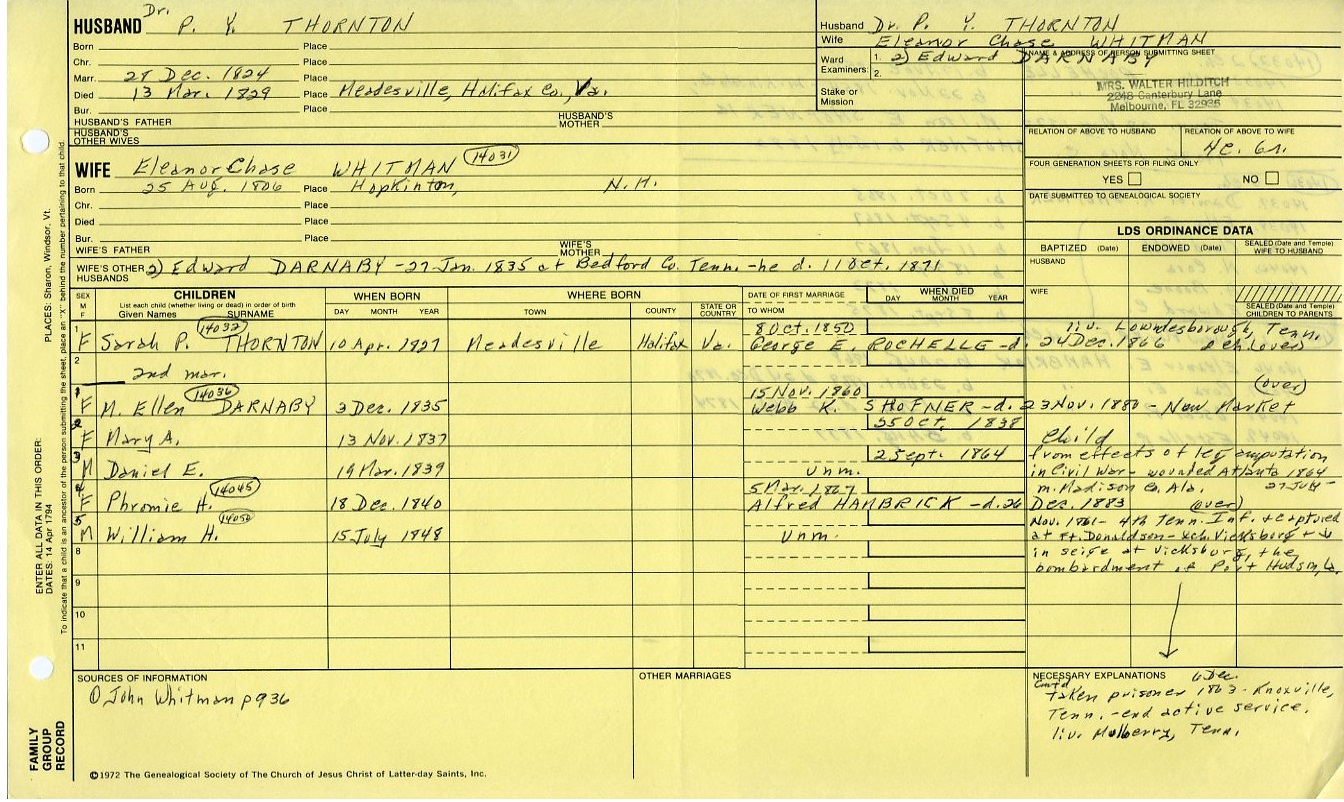 HUSBAND Dr. P. Y. THORNTON
Born Place
Chr. Place
Marr. 28 Dec. 1824 Place
Died 13 Mar. 1829 Place Meadesville, Halifax Co., Va.
Bur. Place
HUSBAND'S FATHER HUSBAND'S MOTHER
HUSBAND'S OTHER WIVES
WIFE Eleanor Chase WHITMAN 14031
Born 25 Aug. 1806 Place Hopkinton, N.H.
Chr. Place
Died Place
Bur. Place
WIFE'S FATHER WIFE'S MOTHER
WIFE'S OTHER HUSBANDS 2) Edward DARNABY - 27 Jan. 1835 at Bedford Co. Tenn. - he d. 11 Oct. 1871
Husband Dr. P. Y. THORNTON
Wife Eleanor Chase WHITMAN
Ward Examiners: 1. 2) Edward DARNABY
2.
Stake or Mission
NAME & ADDRESS OF PERSON SUBMITTING SHEET
MRS. WALTER HILDITCH
2248 Canterbury Lane
Melbourne, FL 32935
RELATION OF ABOVE TO HUSBAND RELATION OF ABOVE TO WIFE
4c. 6r.
FOUR GENERATION SHEETS FOR FILING ONLY
YES NO
DATE SUBMITTED TO GENEALOGICAL SOCIETY
LDS ORDINANCE DATA
BAPTIZED (Date) ENDOWED (Date) SEALED (Date and Temple) WIFE TO HUSBAND
HUSBAND
WIFE
SEALED (Date and Temple) CHILDREN TO PARENTS
SEX M F CHILDREN WHEN BORN WHERE BORN DATE OF FIRST MARRIAGE WHEN DIED
List each child (whether living or dead) in order of birth
Given Names SURNAME DAY MONTH YEAR TOWN COUNTY STATE OR COUNTRY TO WHOM DAY MONTH YEAR
1 14032 8 Oct. 1850 liv. Lowndesborough, Tenn.
F Sarah P. THORNTON 10 Apr. 1827 Meadesville Halifax Va. George E. ROCHELLE - d. 24 Dec. 1866 2 ch. (over)
2
2nd mar.
1 14036 15 Nov. 1860 (over)
F M. Ellen DARNABY 3 Dec. 1835 Webb K. SHOFNER - d. 23 Nov. 1880 - New Market
2 25 Oct. 1838
F Mary A. 13 Nov. 1837 Child
3 2 Sept. 1864 from effects of leg amputation
M Daniel E. 19 Mar. 1839 Unm. in Civil War - wounded Atlanta 1864
27 July -
4 14045 5 Mar. 1867 m. Madison Co. Ala.
F Phromie H. 18 Dec. 1840 Alfred HAMBRICK - d. 26 Dec. 1883 (over)
5 14050 Nov. 1861 - 4th Tenn. Inf. + captured
M William H. 15 July 1848 Unm. at Ft. Donaldson - xch. Vicksburg +
8 in seige at Vicksburg, the
bombardment of Port Hudson, La.
9
10
11
SOURCES OF INFORMATION
① John Whitman p 936
OTHER MARRIAGES
NECESSARY EXPLANATIONS 6 Dec.
Cont'd taken prisoner 1863 - Knoxville,
Tenn. - end active service.
liv. Mulberry, Tenn.
©1972 The Genealogical Society of The Church of Jesus Christ of Latter-day Saints, Inc.
FAMILY GROUP RECORD
ENTER ALL DATA IN THIS ORDER:
DATES: 14 Apr 1794
PLACES: Sharon, Windsor, Vt.
To indicate that a child is an ancestor of the person submitting the sheet, place an "X" behind the number pertaining to that child.